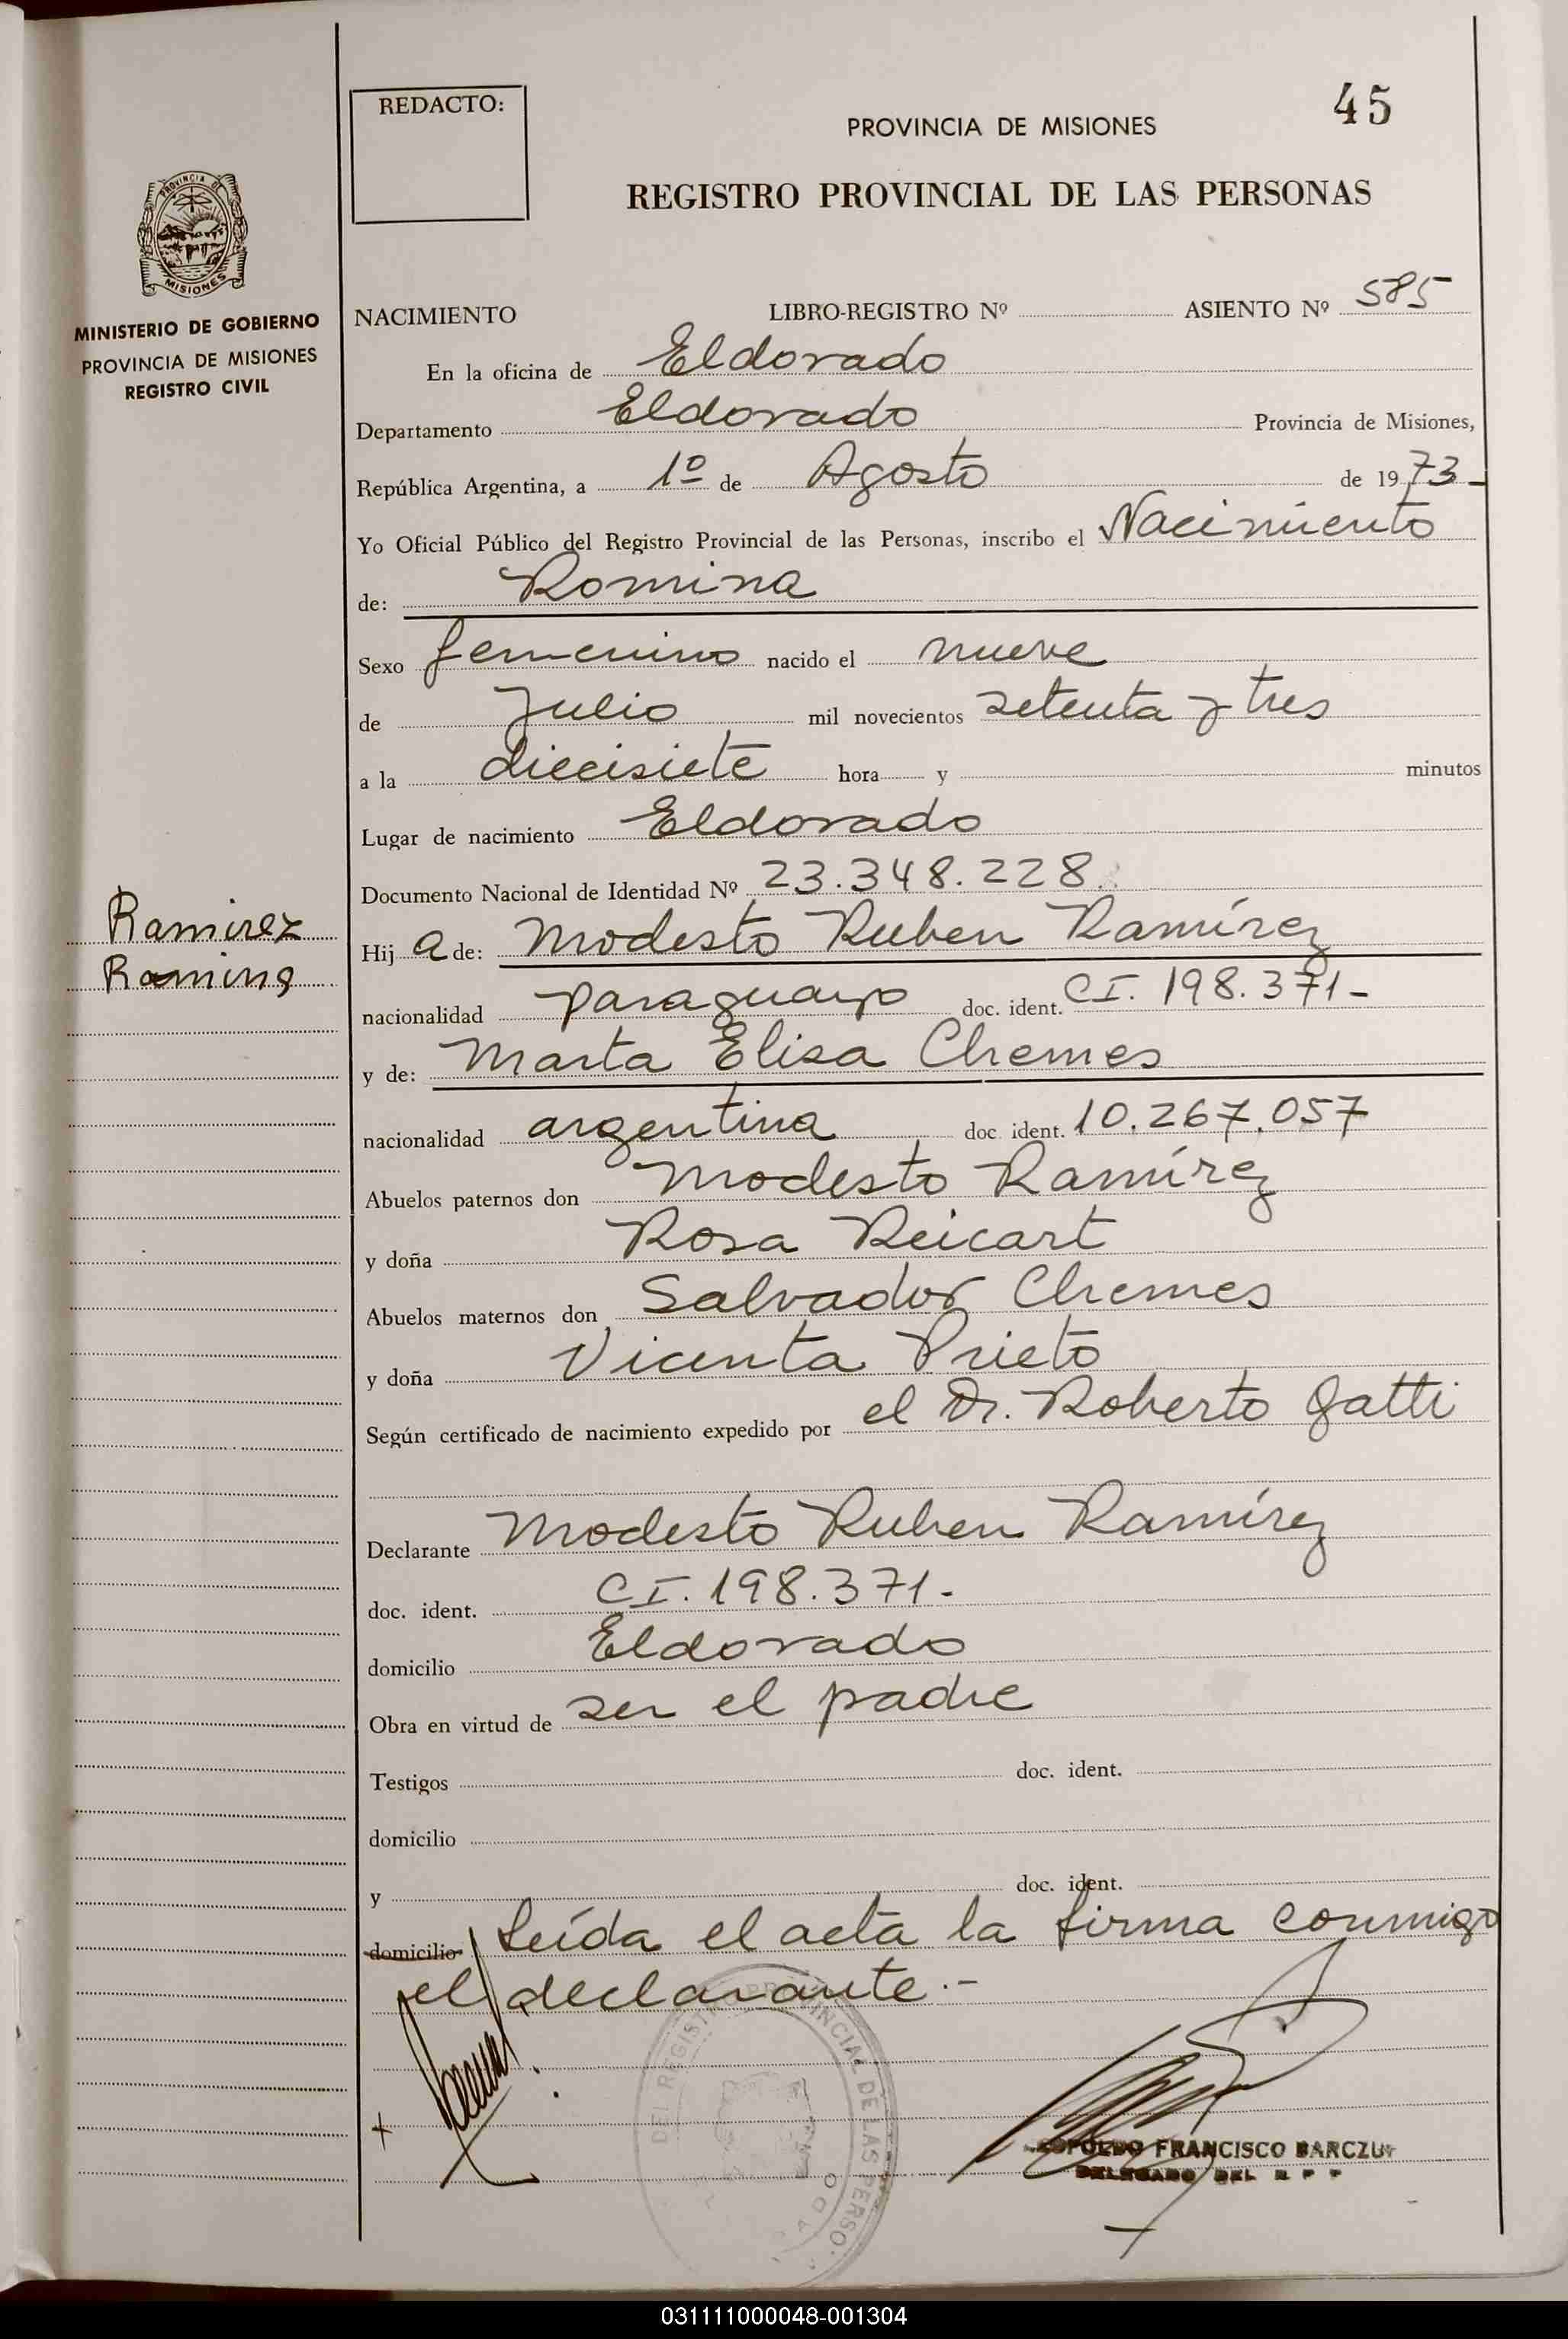 REDACTO:
45
PROVINCIA DE MISIONES
REGISTRO PROVINCIAL DE LAS PERSONAS
PROVINCIA DE
MISIONES
MINISTERIO DE GOBIERNO
PROVINCIA DE MISIONES
REGISTRO CIVIL
NACIMIENTO LIBRO-REGISTRO Nº ASIENTO Nº 585
En la oficina de Eldorado
Departamento Eldorado Provincia de Misiones,
República Argentina, a 1º de Agosto de 1973-
Yo Oficial Público del Registro Provincial de las Personas, inscribo el Nacimiento
de: Romina
Sexo femenino nacido el nueve
de Julio mil novecientos setenta y tres
a la diecisiete hora y minutos
Lugar de nacimiento Eldorado
Documento Nacional de Identidad Nº 23.348.228.
Ramirez
Romina
Hij a de: Modesto Ruben Ramírez
nacionalidad paraguayo doc. ident. CI. 198.371-
y de: Marta Elisa Chemes
nacionalidad argentina doc. ident. 10.267.057
Abuelos paternos don Modesto Ramírez
y doña Rosa Reicart
Abuelos maternos don Salvador Chemes
y doña Vicenta Prieto
Según certificado de nacimiento expedido por el Dr. Roberto Gatti
Declarante Modesto Ruben Ramírez
doc. ident. CI. 198.371-
domicilio Eldorado
Obra en virtud de ser el padre
Testigos doc. ident.
domicilio
y doc. ident.
domicilio Leída el acta la firma conmigo
el declarante.-
DEL REGISTRO PROVINCIAL DE LAS PERSO
FRANCISCO BARCZUK
DELEGADO DEL R P P
031111000048-001304